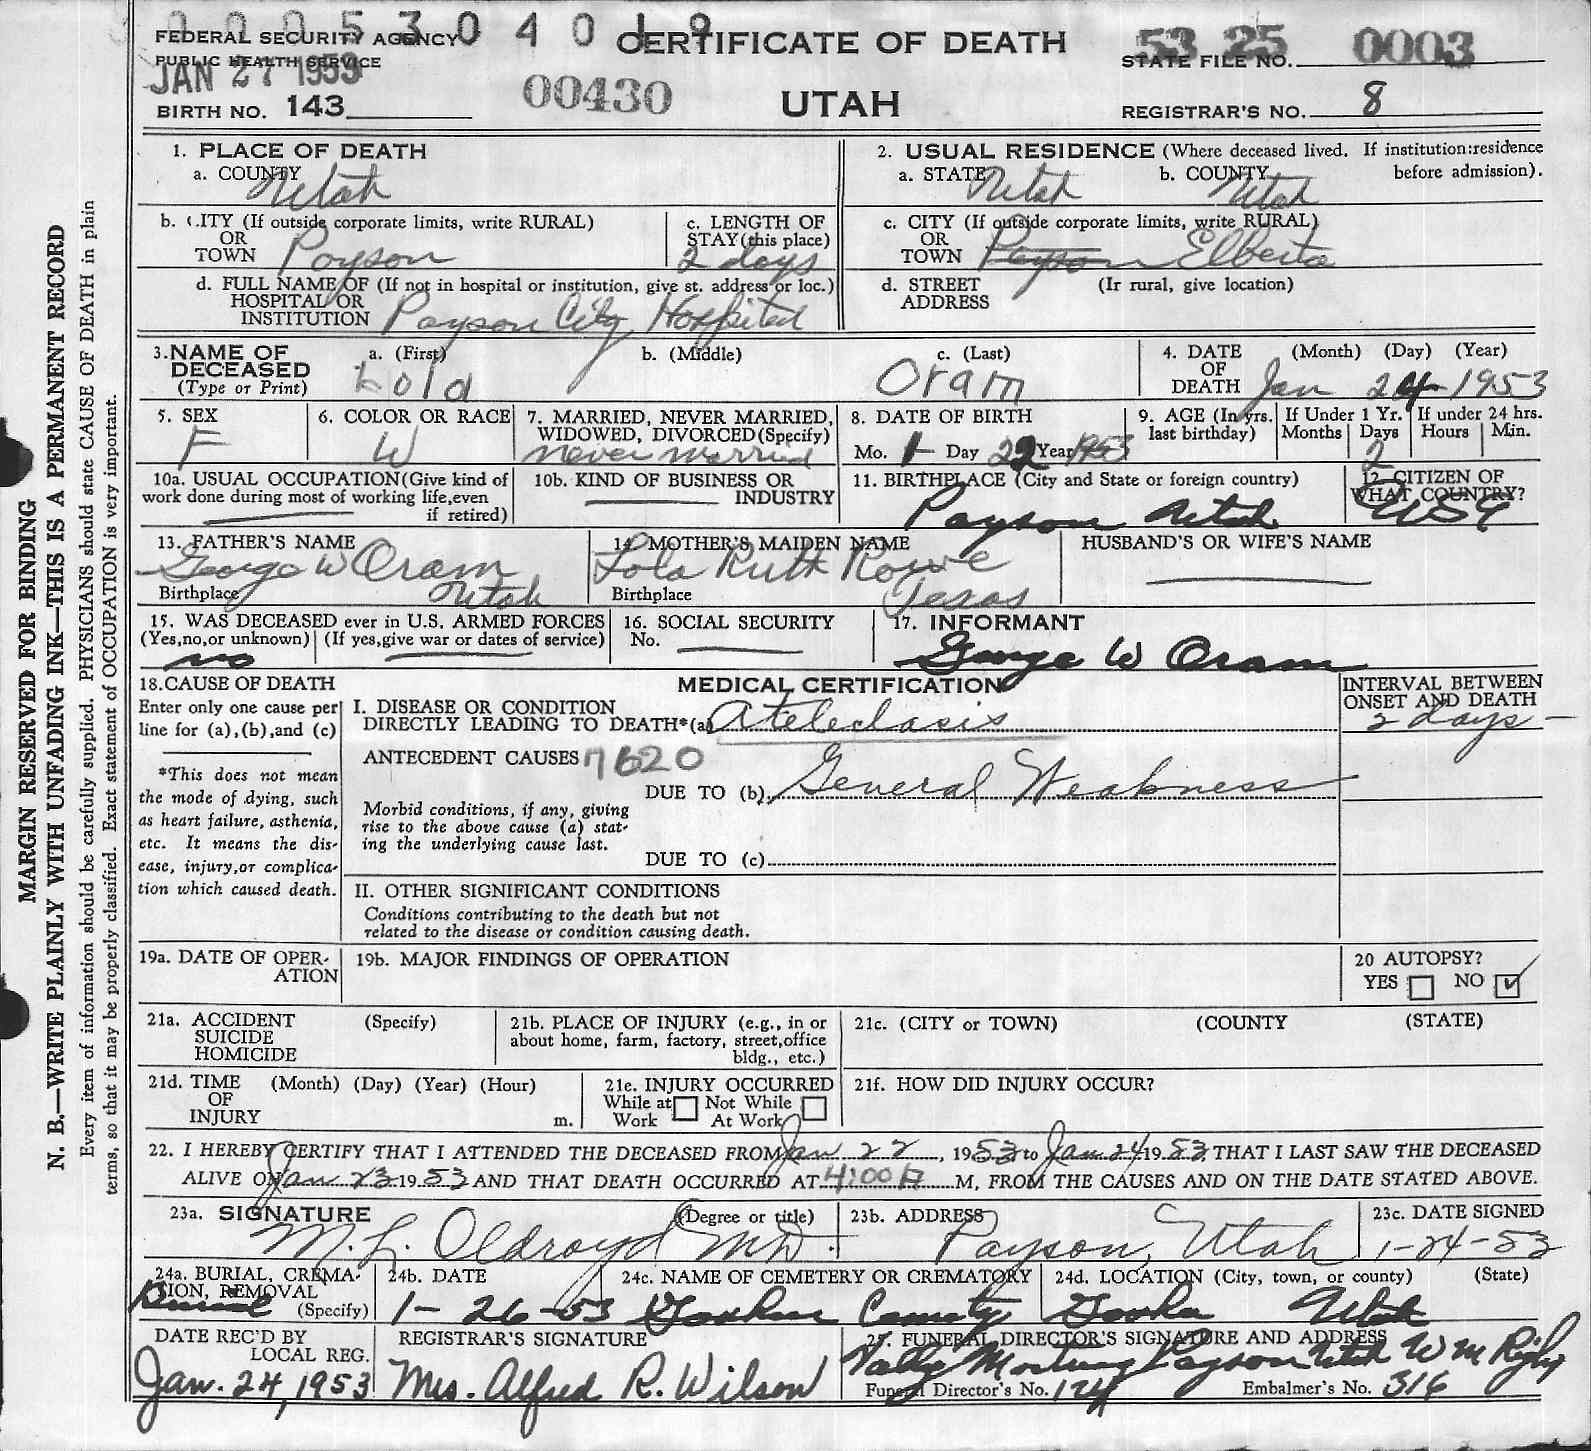 0 0 0 5 3 0 4 0 1 9
FEDERAL SECURITY AGENCY
PUBLIC HEALTH SERVICE
JAN 27 1953
BIRTH NO. 143
00430
CERTIFICATE OF DEATH
UTAH
53 25 0003
STATE FILE NO.
REGISTRAR'S NO. 8
1. PLACE OF DEATH
a. COUNTY Utah
b. CITY (If outside corporate limits, write RURAL)
OR
TOWN Payson
c. LENGTH OF
STAY (this place)
2 days
d. FULL NAME OF (If not in hospital or institution, give st. address or loc.)
HOSPITAL OR
INSTITUTION Payson City Hospital
2. USUAL RESIDENCE (Where deceased lived. If institution:residence
before admission).
a. STATE Utah b. COUNTY Utah
c. CITY (If outside corporate limits, write RURAL)
OR
TOWN Payson Elberta
d. STREET (Ir rural, give location)
ADDRESS
3. NAME OF DECEASED
(Type or Print)
a. (First) Lola
b. (Middle)
c. (Last) Oram
4. DATE OF DEATH (Month) (Day) (Year)
Jan 24 - 1953
5. SEX
F
6. COLOR OR RACE
W
7. MARRIED, NEVER MARRIED,
WIDOWED, DIVORCED (Specify)
never married
8. DATE OF BIRTH
Mo. 1 Day 22 Year 1953
9. AGE (In yrs.
last birthday)
If Under 1 Yr.
Months Days
2
If under 24 hrs.
Hours Min.
10a. USUAL OCCUPATION (Give kind of
work done during most of working life, even
if retired)
10b. KIND OF BUSINESS OR
INDUSTRY
11. BIRTHPLACE (City and State or foreign country)
Payson Utah
12. CITIZEN OF
WHAT COUNTRY?
USA
13. FATHER'S NAME
George W Oram
Birthplace Utah
14. MOTHER'S MAIDEN NAME
Lola Ruth Rowe
Birthplace Texas
HUSBAND'S OR WIFE'S NAME
15. WAS DECEASED ever in U.S. ARMED FORCES
(Yes, no, or unknown) (If yes, give war or dates of service)
no
16. SOCIAL SECURITY
No.
17. INFORMANT
George W Oram
18. CAUSE OF DEATH
Enter only one cause per
line for (a), (b), and (c)
*This does not mean
the mode of dying, such
as heart failure, asthenia,
etc. It means the dis-
ease, injury, or complica-
tion which caused death.
MEDICAL CERTIFICATION
I. DISEASE OR CONDITION
DIRECTLY LEADING TO DEATH*(a) Atelectasis
ANTECEDENT CAUSES 7620
DUE TO (b) General Weakness
Morbid conditions, if any, giving
rise to the above cause (a) stat-
ing the underlying cause last.
DUE TO (c)
II. OTHER SIGNIFICANT CONDITIONS
Conditions contributing to the death but not
related to the disease or condition causing death.
INTERVAL BETWEEN
ONSET AND DEATH
2 days -
19a. DATE OF OPER-
ATION
19b. MAJOR FINDINGS OF OPERATION
20 AUTOPSY?
YES NO
21a. ACCIDENT (Specify)
SUICIDE
HOMICIDE
21b. PLACE OF INJURY (e.g., in or
about home, farm, factory, street, office
bldg., etc.)
21c. (CITY or TOWN) (COUNTY (STATE)
21d. TIME (Month) (Day) (Year) (Hour)
OF
INJURY m.
21e. INJURY OCCURRED
While at Not While
Work At Work
21f. HOW DID INJURY OCCUR?
22. I HEREBY CERTIFY THAT I ATTENDED THE DECEASED FROM Jan 22, 1953 to Jan 24 1953 THAT I LAST SAW THE DECEASED
ALIVE ON Jan 23 1953 AND THAT DEATH OCCURRED AT 4:00 M, FROM THE CAUSES AND ON THE DATE STATED ABOVE.
23a. SIGNATURE (Degree or title)
M. L. Oldroyd M.D.
23b. ADDRESS
Payson, Utah
23c. DATE SIGNED
1-24-53
24a. BURIAL, CREMA-
TION, REMOVAL
Burial (Specify)
24b. DATE
1-26-53
24c. NAME OF CEMETERY OR CREMATORY
Goshen County
24d. LOCATION (City, town, or county) (State)
Utah
DATE REC'D BY
LOCAL REG.
Jan. 24, 1953
REGISTRAR'S SIGNATURE
Mrs. Alfred R. Wilson
25. FUNERAL DIRECTOR'S SIGNATURE AND ADDRESS
Valley Mortuary Payson Utah W M Rigby
Funeral Director's No. 124 Embalmer's No. 316
MARGIN RESERVED FOR BINDING
N. B.—WRITE PLAINLY WITH UNFADING INK—THIS IS A PERMANENT RECORD
Every item of information should be carefully supplied. PHYSICIANS should state CAUSE OF DEATH in plain
terms, so that it may be properly classified. Exact statement of OCCUPATION is very important.